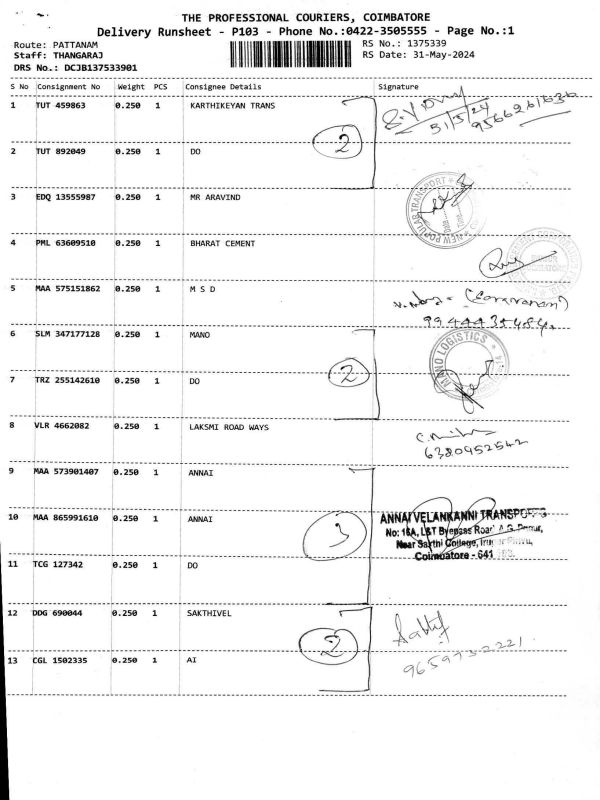 THE PROFESSIONAL COURIERS, COIMBATORE
Delivery Runsheet - P103 - Phone No.:0422-3505555 - Page No.:1
Route: PATTANAM
Staff: THANGARAJ
DRS No.: DCJB137533901
RS No.: 1375339
RS Date: 31-May-2024
S No Consignment No Weight PCS Consignee Details Signature
1 TUT 459863 0.250 1 KARTHIKEYAN TRANS
31/5/24
9566261636
2
2 TUT 892049 0.250 1 DO
3 EDQ 13555987 0.250 1 MR ARAVIND
NEW POPULAR TRANSPORT
4 PML 63609510 0.250 1 BHARAT CEMENT
5 MAA 575151862 0.250 1 M S D
(Saravanan)
6 SLM 347177128 0.250 1 MANO
MANO LOGISTICS
2
7 TRZ 255142610 0.250 1 DO
8 VLR 4662082 0.250 1 LAKSMI ROAD WAYS
6380952542
9 MAA 573901407 0.250 1 ANNAI
10 MAA 865991610 0.250 1 ANNAI
3
ANNAI VELANKANNI TRANSPORTS
No: 16A, L&T Byepass Road
Near Sakthi College,
Coimbatore - 641
11 TCG 127342 0.250 1 DO
12 DDG 690044 0.250 1 SAKTHIVEL
2
Sakthi
13 CGL 1502335 0.250 1 AI